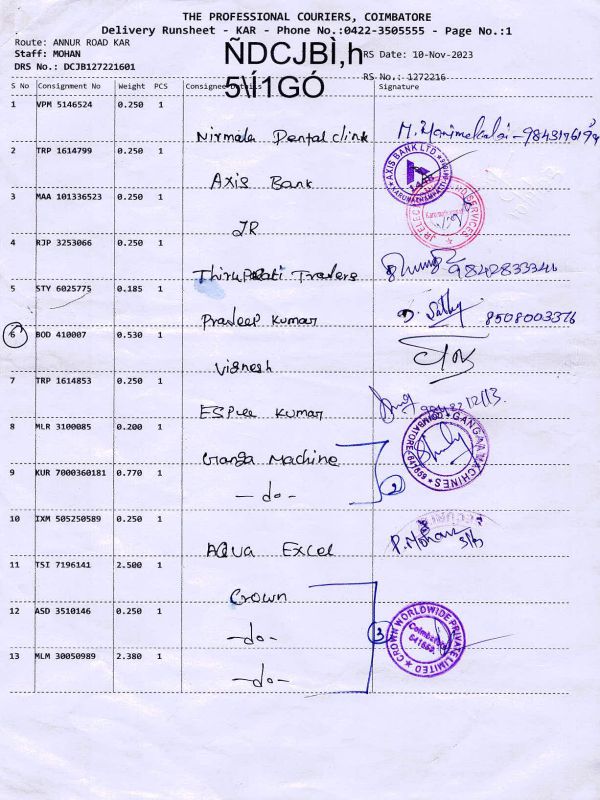 THE PROFESSIONAL COURIERS, COIMBATORE
Delivery Runsheet - KAR - Phone No.:0422-3505555 - Page No.:1
Route: ANNUR ROAD KAR
Staff: MOHAN
DRS No.: DCJB127221601
ÑDCJBÌ,h
5\Í1GÓ
RS Date: 10-Nov-2023
RS No.: 1272216
S No Consignment No Weight PCS Consignee Details Signature
1 VPM 5146524 0.250 1
Nirmala Dental clinic
2 TRP 1614799 0.250 1
Axis Bank
AXIS BANK LTD
3 MAA 101336523 0.250 1
JR
4 RJP 3253066 0.250 1
Thirupati Traders 9842833346
5 STY 6025775 0.185 1
Pradeep Kumar D. 8508003376
6 BOD 410007 0.530 1
Vignesh
7 TRP 1614853 0.250 1
Kumar
8 MLR 3100085 0.200 1
Ganga Machine
GANGA MACHINES
COIMBATORE-641659
2
9 KUR 7000360181 0.770 1
-do-
10 IXM 505250589 0.250 1
AQUA Excel P. Mohan
11 TSI 7196141 2.500 1
Crown
12 ASD 3510146 0.250 1
-do-
3
CROWN WORLDWIDE PRIVATE LIMITED
Coimbatore
641659.
13 MLM 30050989 2.380 1
-do-